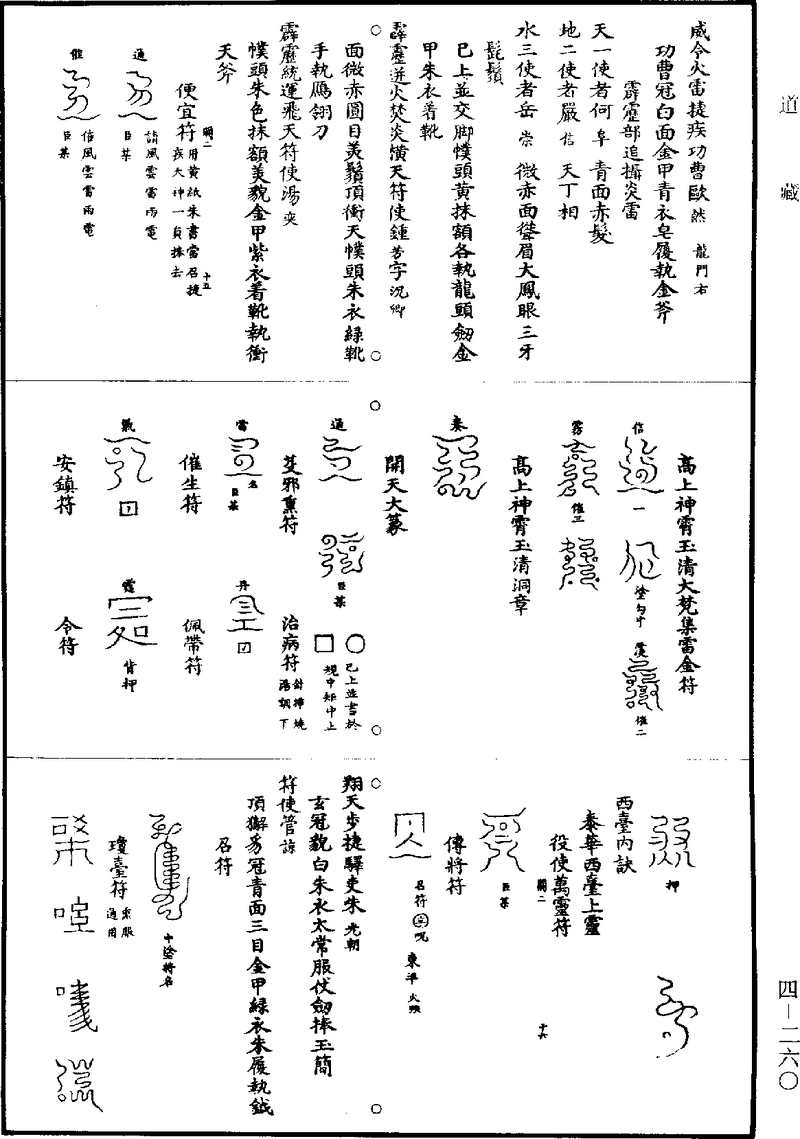 道藏
四—二六〇
威令火雷捷疾功曹歐然 龍門右
功曹冠白面金甲青衣皂履執金斧
霹靂部追攝炎雷
天一使者何阜 青面赤髮
地二使者嚴信 天丁相
水三使者岳崇 微赤面聳眉大鳳眼三牙
髭鬚
已上並交脚幞頭黃抹額各執龍頭劒金
甲朱衣着靴
霹靂迸火焚炎憤天符使鍾芳字沉卿
面微赤圓目美鬚頂衝天幞頭朱衣綠靴
手執鴈翎刀
霹靂統運飛天符使湯奭
幞頭朱色抹額美貌金甲紫衣着靴執衝
天斧
便宜符 用黃紙朱書當召捷
疾大神一員捧去
關二
十五
通 請風雲雷雨電
臣某
催 信風雲雷雨電
臣某
高上神霄玉清大梵集雷金符
信 一 塗勾中 催二
霧 催三
高上神霄玉清洞章
奏
開天大篆
通 臣某
已上並書於
規中矩中上
芟邪熏符 治病符
雷 名 臣某
丹
催生符 佩帶符
氣
霞 背押
安鎮符 令符
押
西臺內訣
泰華西臺上靈
役使萬靈符
關二 十六
臣某
傳將符
召符 呪 東平 火煞
翔天步捷驛吏朱光朝
玄冠貌白朱衣太常服仗劒捧玉簡
符使管諒
頂獬豸冠青面三目金甲綠衣朱履執鉞
召符
中塗將名
瓊臺符 通用